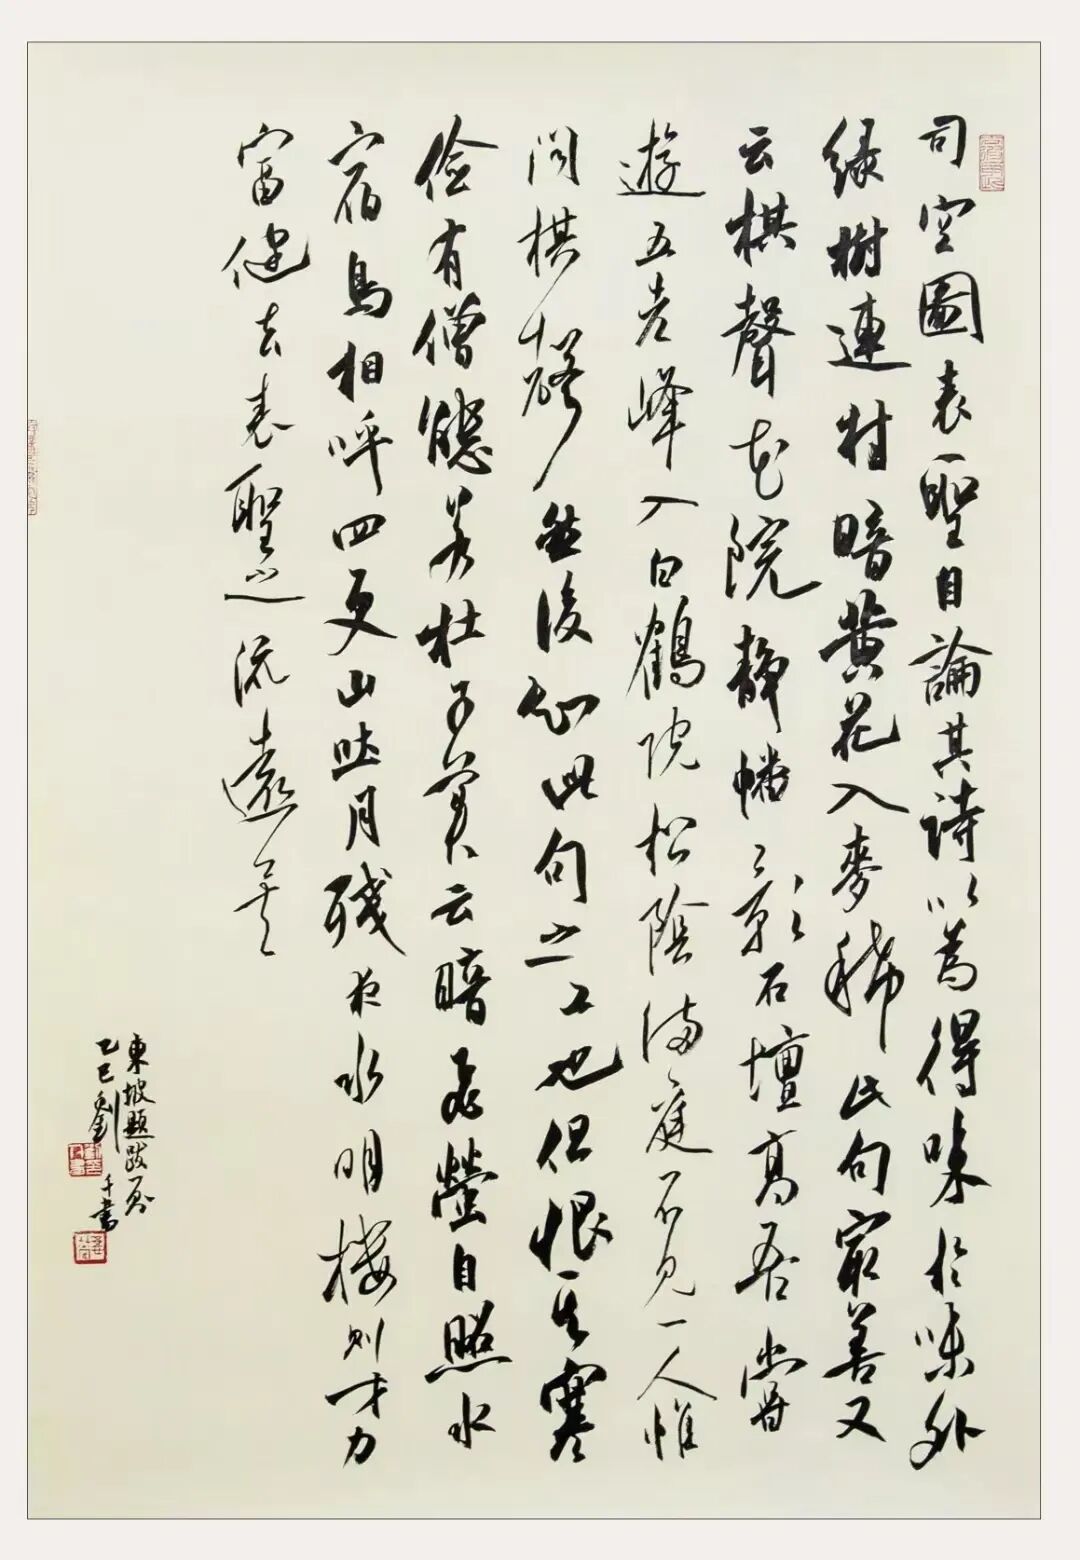 司空圖表聖自論其詩以為得味於味外
綠樹連村暗黃花入麥稀此句最善又
云棋聲花院靜幡影石壇高吾嘗
遊五老峰入白鶴院松陰滿庭不見一人惟
聞棋聲然後知此句之工也但恨其寒
儉有僧態若杜子美云暗飛螢自照水
宿鳥相呼四更山吐月殘夜水明樓則才力
富健去表聖之流遠矣
東坡題跋句
乙巳劉 千書